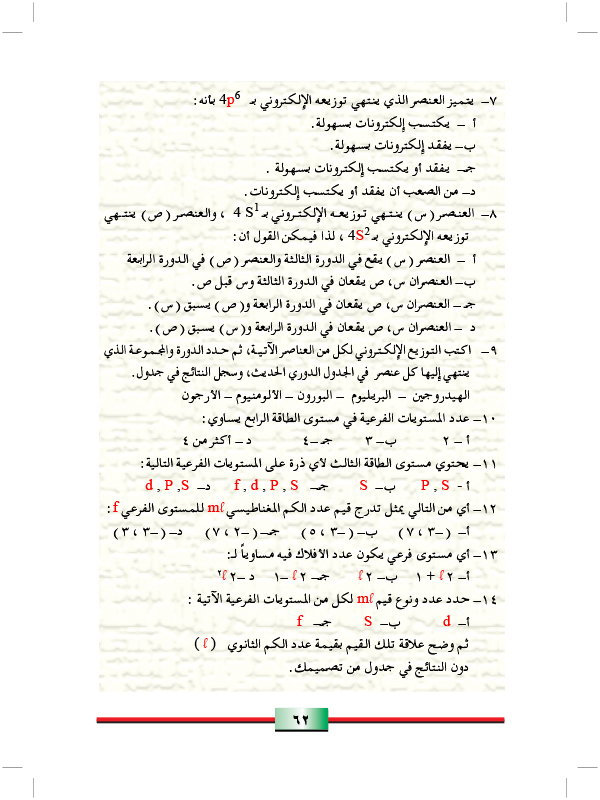 ٧– يتميز العنصر الذي ينتهي توزيعه الإلكتروني بـ 4p⁶ بأنه:
أ – يكتسب إلكترونات بسهولة.
ب– يفقد إلكترونات بسهولة.
جـ– يفقد أو يكتسب إلكترونات بسهولة .
د– من الصعب أن يفقد أو يكتسب إلكترونات.
٨– العنصر (س) ينتهي توزيعه الإلكتروني بـ 4 S¹ ، والعنصر (ص) ينتهي
توزيعه الإلكتروني بـ 4S² ، لذا فيمكن القول أن:
أ – العنصر (س) يقع في الدورة الثالثة والعنصر (ص) في الدورة الرابعة
ب– العنصران س، ص يقعان في الدورة الثالثة وس قبل ص.
جـ– العنصران س، ص يقعان في الدورة الرابعة و(ص) يسبق (س).
د – العنصران س، ص يقعان في الدورة الرابعة و(س) يسبق (ص).
٩– اكتب التوزيع الإلكتروني لكل من العناصر الآتية، ثم حدد الدورة والمجموعة الذي
ينتهي إليها كل عنصر في الجدول الدوري الحديث، وسجل النتائج في جدول.
الهيدروجين – البريليوم – البورون – الالومنيوم – الأرجون
١٠– عدد المستويات الفرعية في مستوى الطاقة الرابع يساوي:
أ – ٢ ب– ٣ جـ –٤ د – أكثر من ٤
١١– يحتوي مستوى الطاقة الثالث لأي ذرة على المستويات الفرعية التالية:
أ - P , S ب– S جـ– f , d , P , S د– d , P ,S
١٢– أي من التالي يمثل تدرج قيم عدد الكم المغناطيسي mℓ للمستوى الفرعي f :
أ– (–٣ ، ٧) ب– (–٣ ، ٥) جـ– (–٢ ، ٧) د– (–٣ ، ٣)
١٣– أي مستوى فرعي يكون عدد الافلاك فيه مساوياً لـ:
أ– ٢ℓ + ١ ب– ٢ℓ جـ– ٢ℓ –١ د –٢ℓ٢
١٤– حدد عدد ونوع قيم mℓ لكل من المستويات الفرعية الآتية :
أ– d ب– S جـ– f
ثم وضح علاقة تلك القيم بقيمة عدد الكم الثانوي (ℓ)
دون النتائج في جدول من تصميمك.
٦٢